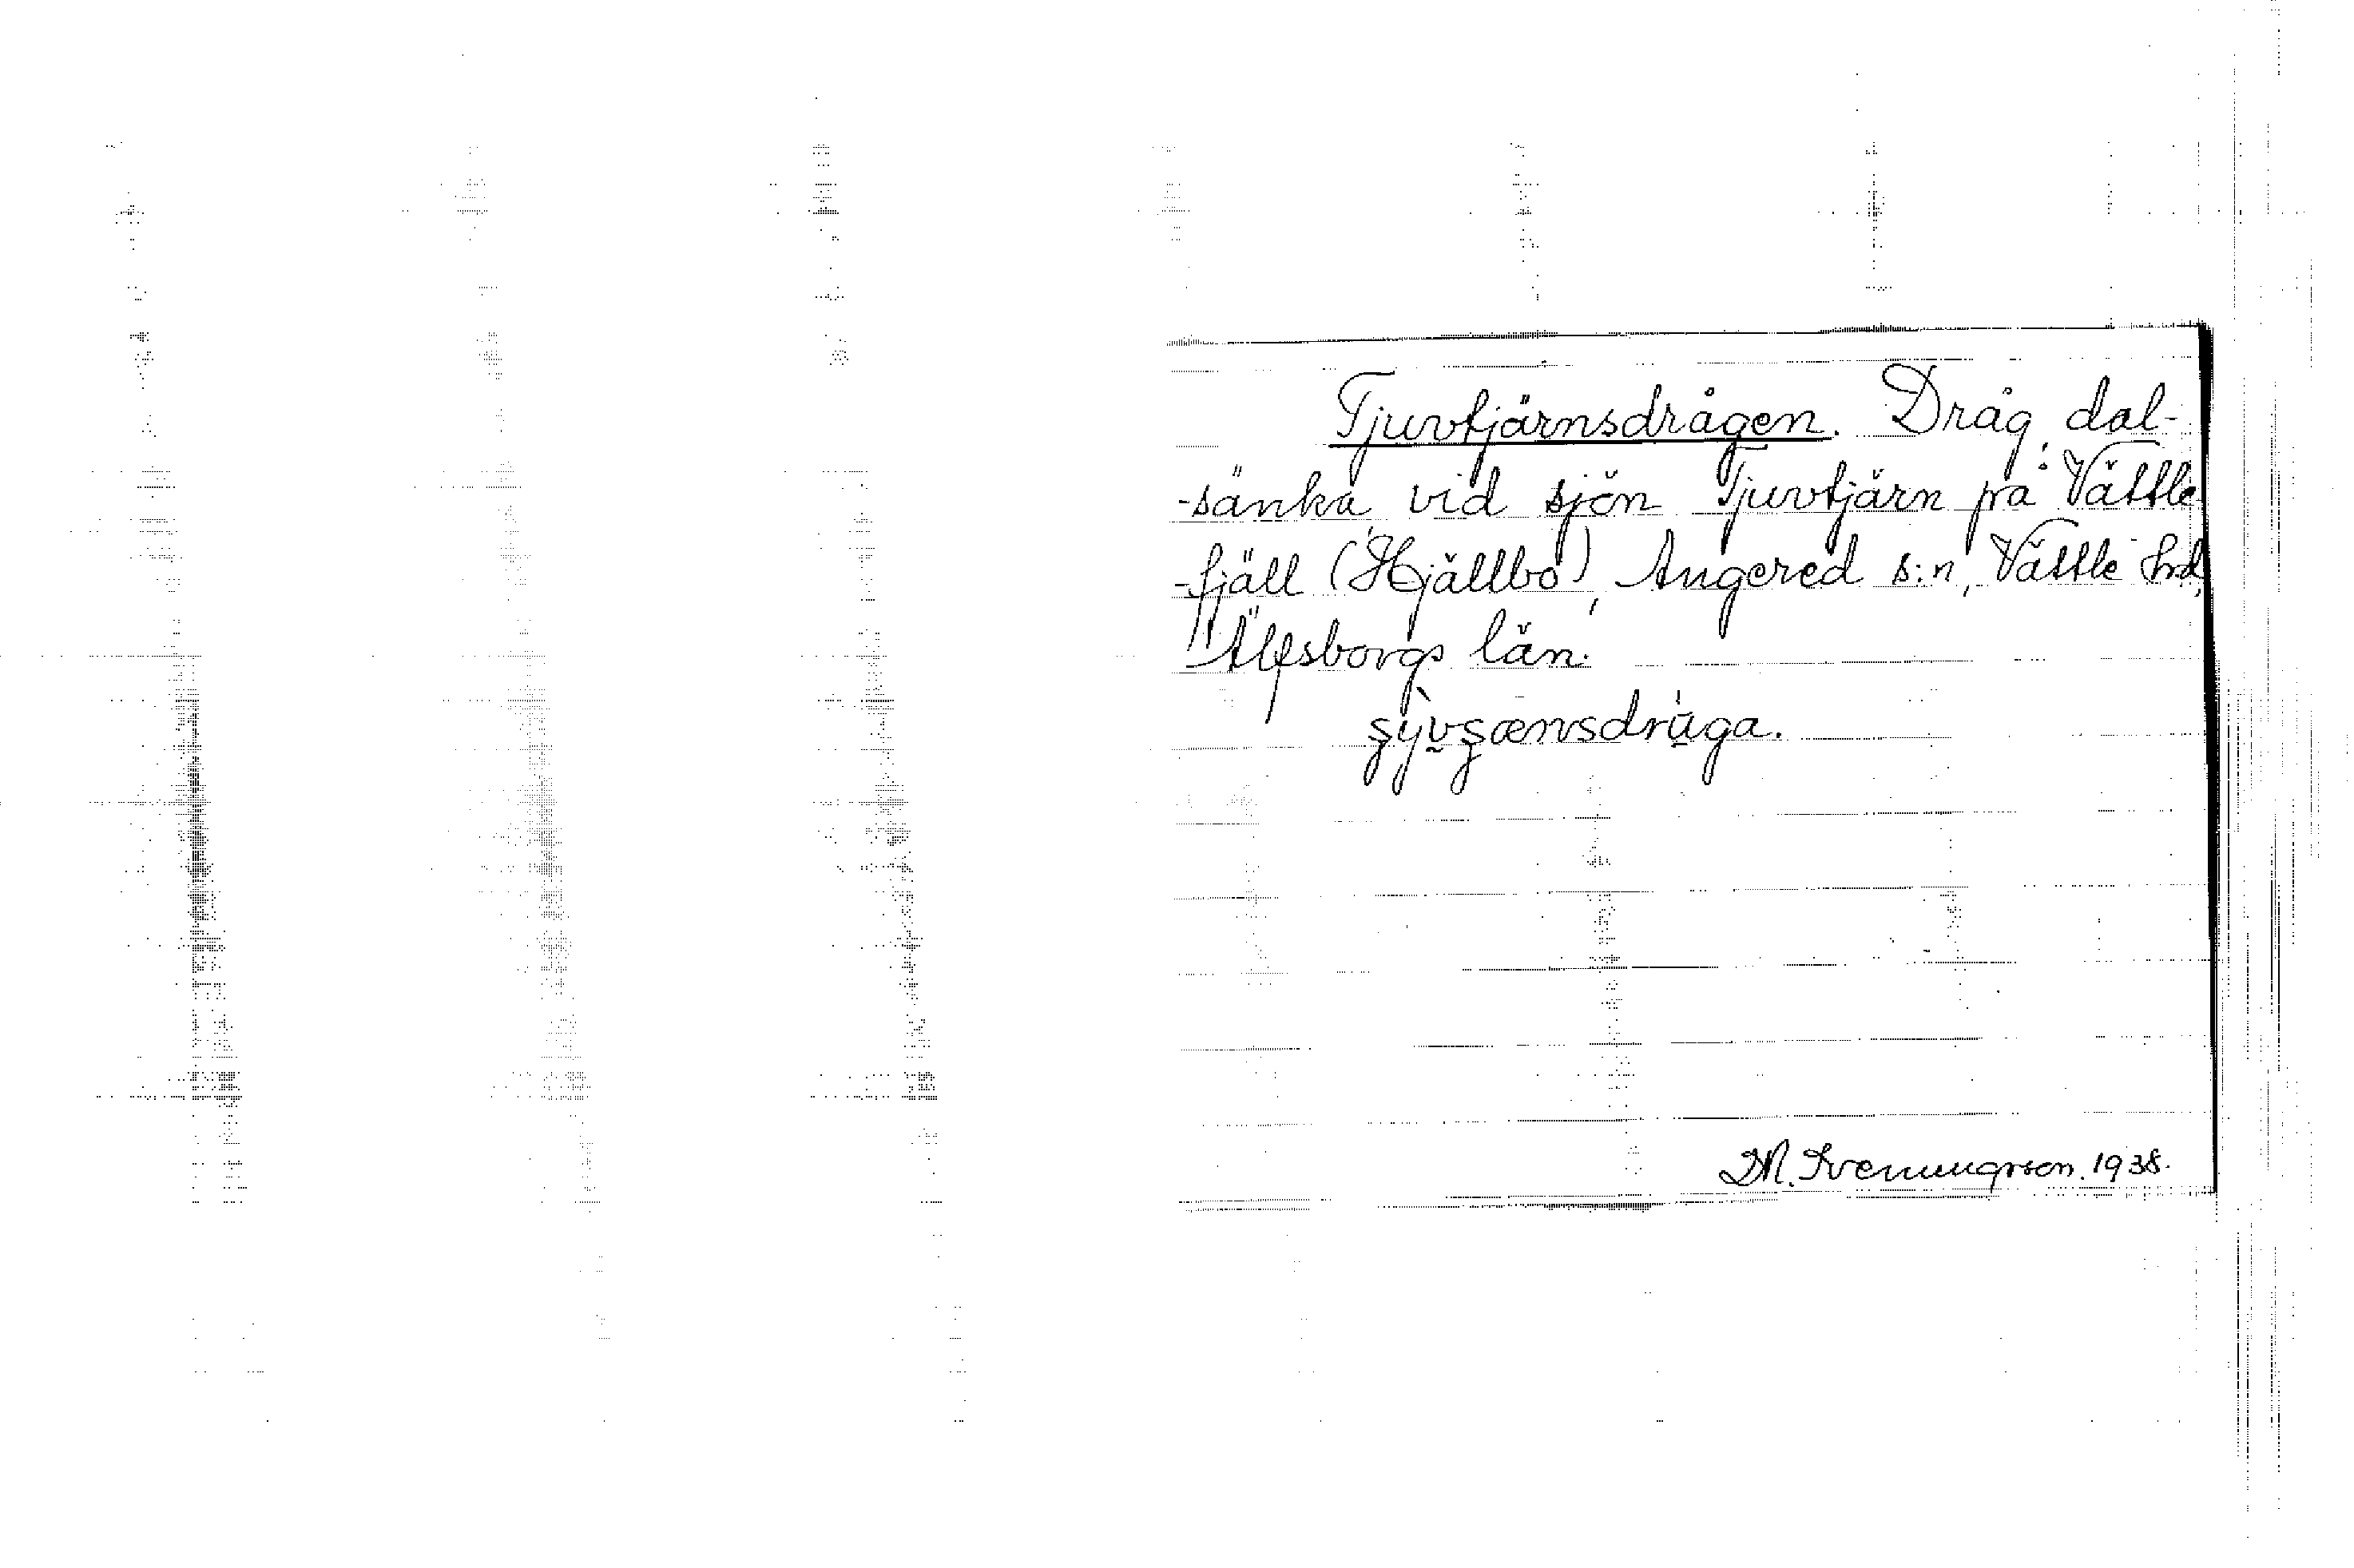 Tjuvtjärnsdrågen. Dråg, dal-
-sänka vid sjön Tjuvtjärn på Vättle
-fjäll (Hjällbo), Angered s:n, Vättle hrd,
Älfsborgs län.
M. Svenungsson. 1938.